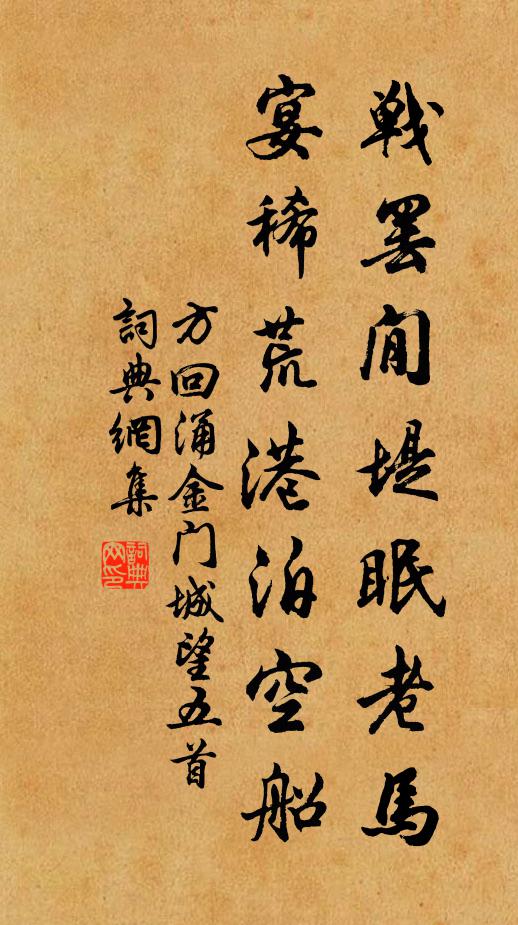 戦罢閒堤眠老馬
宴稀荒港泊空船
方回涌金门城望五首
詞典網集
詞典
网印